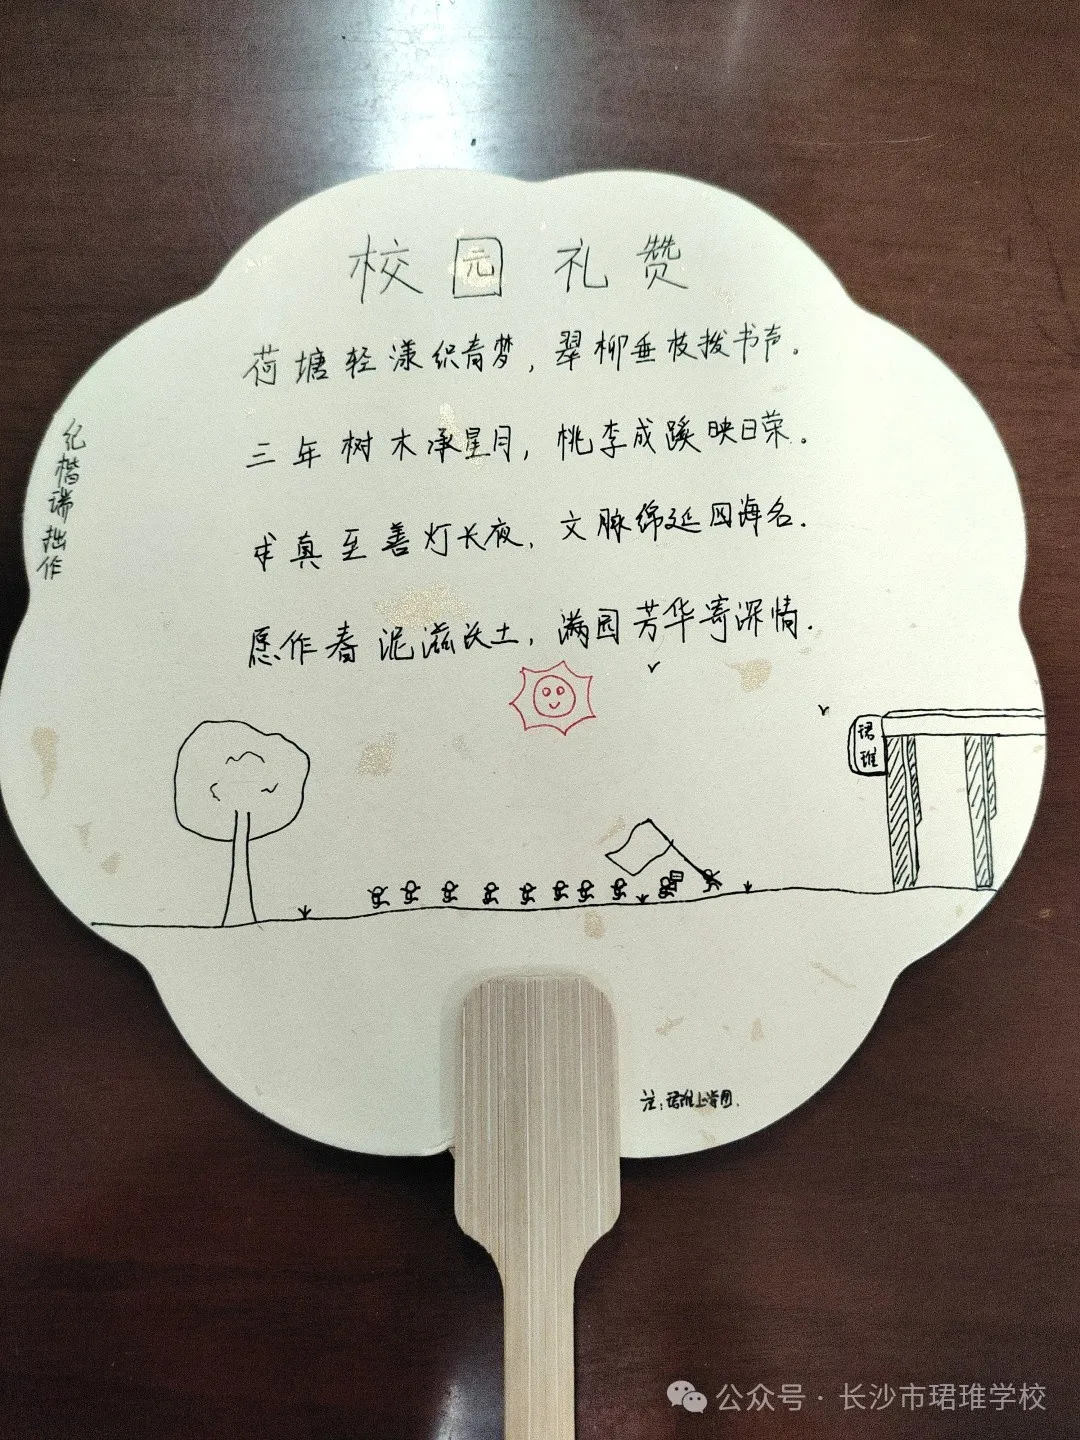 校园礼赞
荷塘轻漾织青梦，翠柳垂枝拨书声。
三年树木承星月，桃李成蹊映日荣。
求真至善灯长夜，文脉绵延四海名。
愿作春泥滋沃土，满园芳华寄深情。
纪楷瑞拙作
珺琟
注：珺琟上学图.
公众号·长沙市珺琟学校